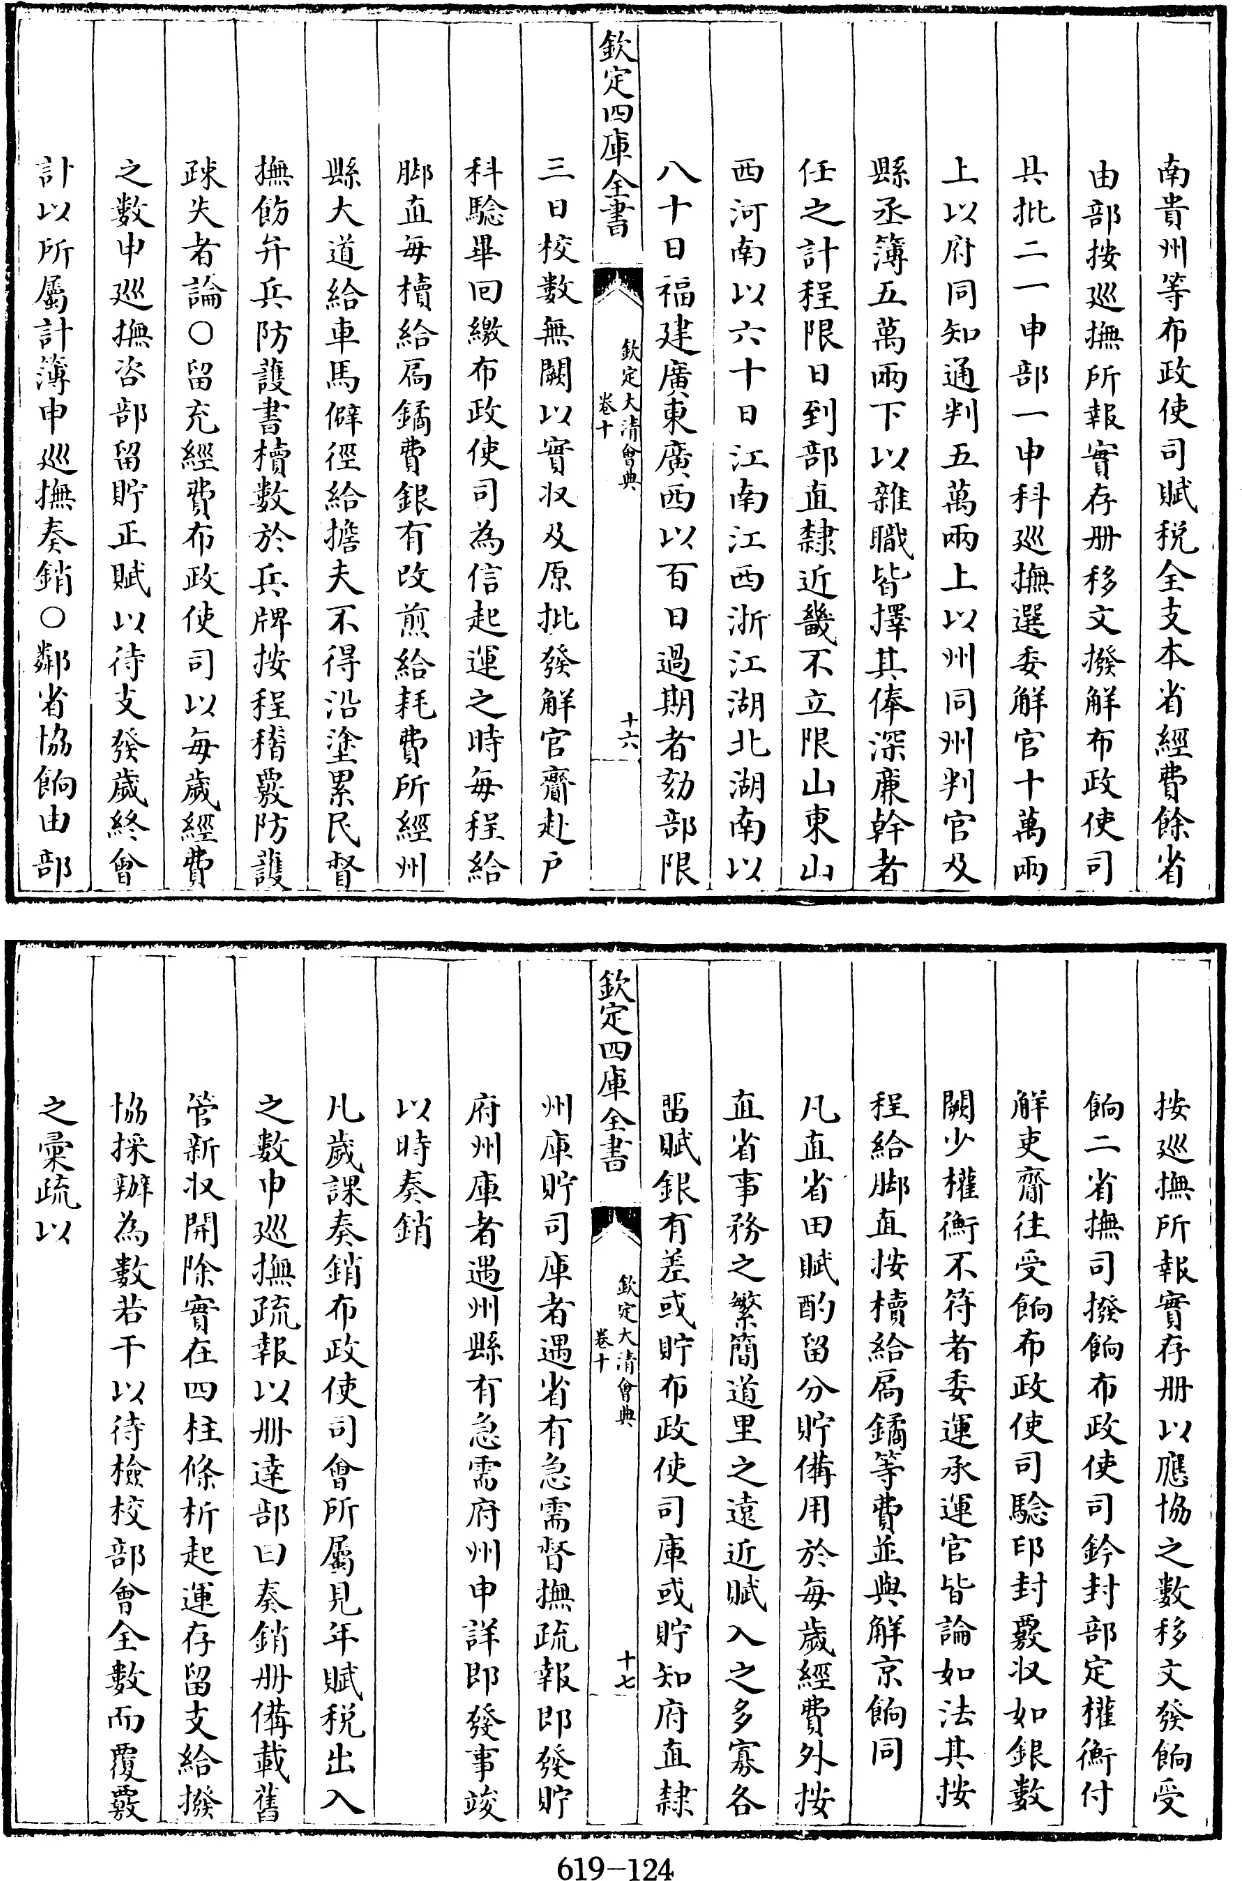 南貴州等布政使司賦税全支本省經費餘省
由部按巡撫所報實存册移文撥解布政使司
具批二一申部一申科巡撫選委解官十萬兩
上以府同知通判五萬兩上以州同州判官及
縣丞簿五萬兩下以雜職皆擇其俸深廉幹者
任之計程限日到部直隸近畿不立限山東山
西河南以六十日江南江西浙江湖北湖南以
八十日福建廣東廣西以百日過期者劾部限
欽定四庫全書
欽定大清會典
卷十
十六
三日校數無闕以實収及原批發解官齎赴户
科驗畢回繳布政使司為信起運之時每程給
脚直每櫝給扃鐍費銀有改煎給耗費所經州
縣大道給車馬僻徑給擔夫不得沿塗累民督
撫飭弁兵防護書櫝數於兵牌按程稽覈防護
疎失者論〇留充經費布政使司以每歲經費
之數申巡撫咨部留貯正賦以待支發歲終會
計以所屬計簿申巡撫奏銷〇鄰省協餉由部
按巡撫所報實存册以應協之數移文發餉受
餉二省撫司撥餉布政使司鈐封部定權衡付
解吏齎往受餉布政使司驗印封覈収如銀數
闕少權衡不符者委運承運官皆論如法其按
程給脚直按櫝給扃鐍等費並與解京餉同
凡直省田賦酌留分貯備用於每歲經費外按
直省事務之繁簡道里之遠近賦入之多寡各
畱賦銀有差或貯布政使司庫或貯知府直隸
欽定四庫全書
欽定大清會典
卷十
十七
州庫貯司庫者遇省有急需督撫疏報即發貯
府州庫者遇州縣有急需府州申詳即發事竣
以時奏銷
凡歲課奏銷布政使司會所屬見年賦税出入
之數申巡撫疏報以册達部曰奏銷册備載舊
管新収開除實在四柱條析起運存留支給撥
協採辦為數若干以待檢校部會全數而覆覈
之彚疏以
619-124